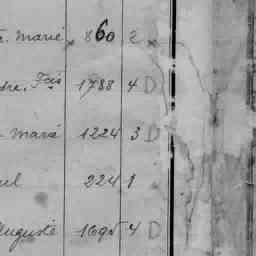 Marié 860 2
dre. Fçis 1788 4 D
Marié 1224 3 D
ul 224 1
Auguste 1695 4 D